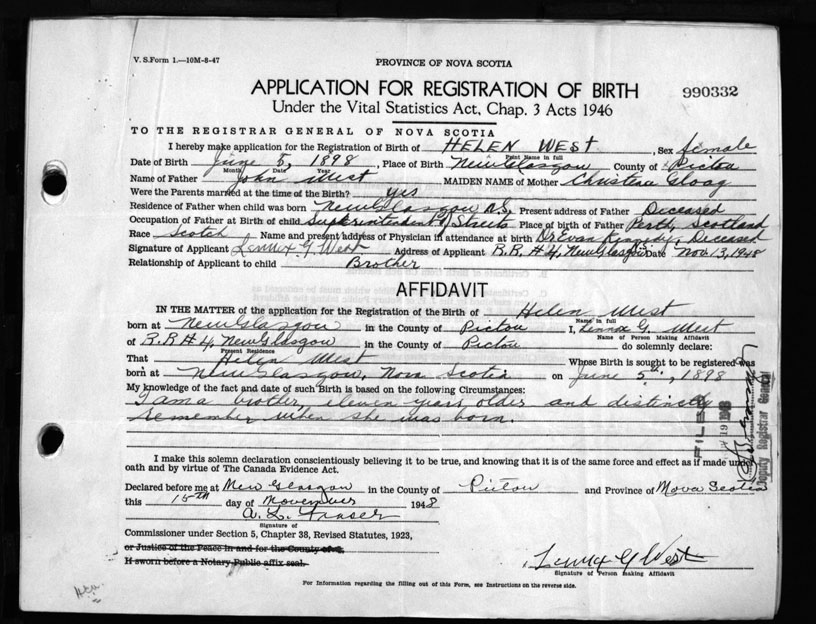 V. S. Form 1.—10M-8-47
PROVINCE OF NOVA SCOTIA
APPLICATION FOR REGISTRATION OF BIRTH
990332
Under the Vital Statistics Act, Chap. 3 Acts 1946
TO THE REGISTRAR GENERAL OF NOVA SCOTIA
I hereby make application for the Registration of Birth of HELEN WEST, Sex female
Print Name in full
Date of Birth June 5, 1898, Place of Birth New Glasgow County of Pictou
Month Date Year
Name of Father John West MAIDEN NAME of Mother Christena Gloag
Were the Parents married at the time of the Birth? yes
Residence of Father when child was born New Glasgow N.S, Present address of Father Deceased
Occupation of Father at Birth of child Superintendent of Streets Place of birth of Father Perth, Scotland
Race Scotch Name and present address of Physician in attendance at birth Dr Evan Kennedy, Deceased
Signature of Applicant Lennox G West Address of Applicant R.R. #4, New Glasgow Date Nov 13, 1948
Relationship of Applicant to child Brother
AFFIDAVIT
IN THE MATTER of the application for the Registration of the Birth of Helen West
Name in full
born at New Glasgow in the County of Pictou I, Lennox G. West
Name of Person Making Affidavit
of R.R #4, New Glasgow in the County of Pictou do solemnly declare:
Present Residence
That Helen West Whose Birth is sought to be registered was
born at New Glasgow, Nova Scotia on June 5th, 1898
My knowledge of the fact and date of such Birth is based on the following Circumstances:
I am a brother, eleven years older and distinctly
remember when she was born.
FILED
19 1948
Deputy Registrar General
I make this solemn declaration conscientiously believing it to be true, and knowing that it is of the same force and effect as if made under
oath and by virtue of The Canada Evidence Act.
Declared before me at New Glasgow in the County of Pictou and Province of Nova Scotia
this 15th day of November 1948
A. L. Fraser
Signature of
Commissioner under Section 5, Chapter 38, Revised Statutes, 1923,
or Justice of the Peace in and for the County of
If sworn before a Notary Public affix seal.
Lennox G West
Signature of Person Making Affidavit
For Information regarding the filling out of this Form, see Instructions on the reverse side.